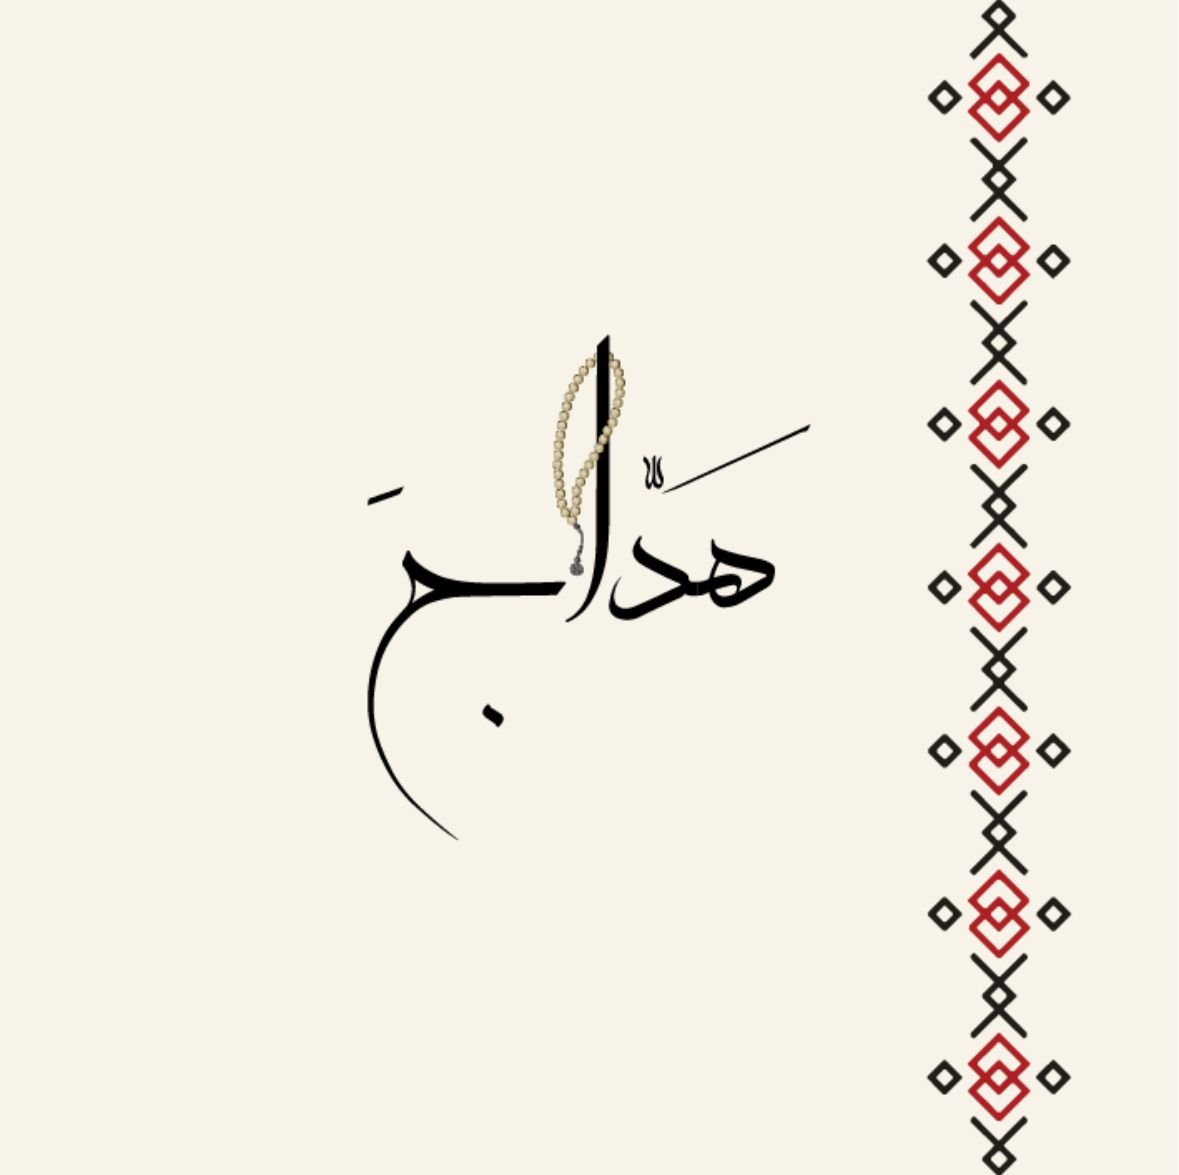 هَدّاجَ